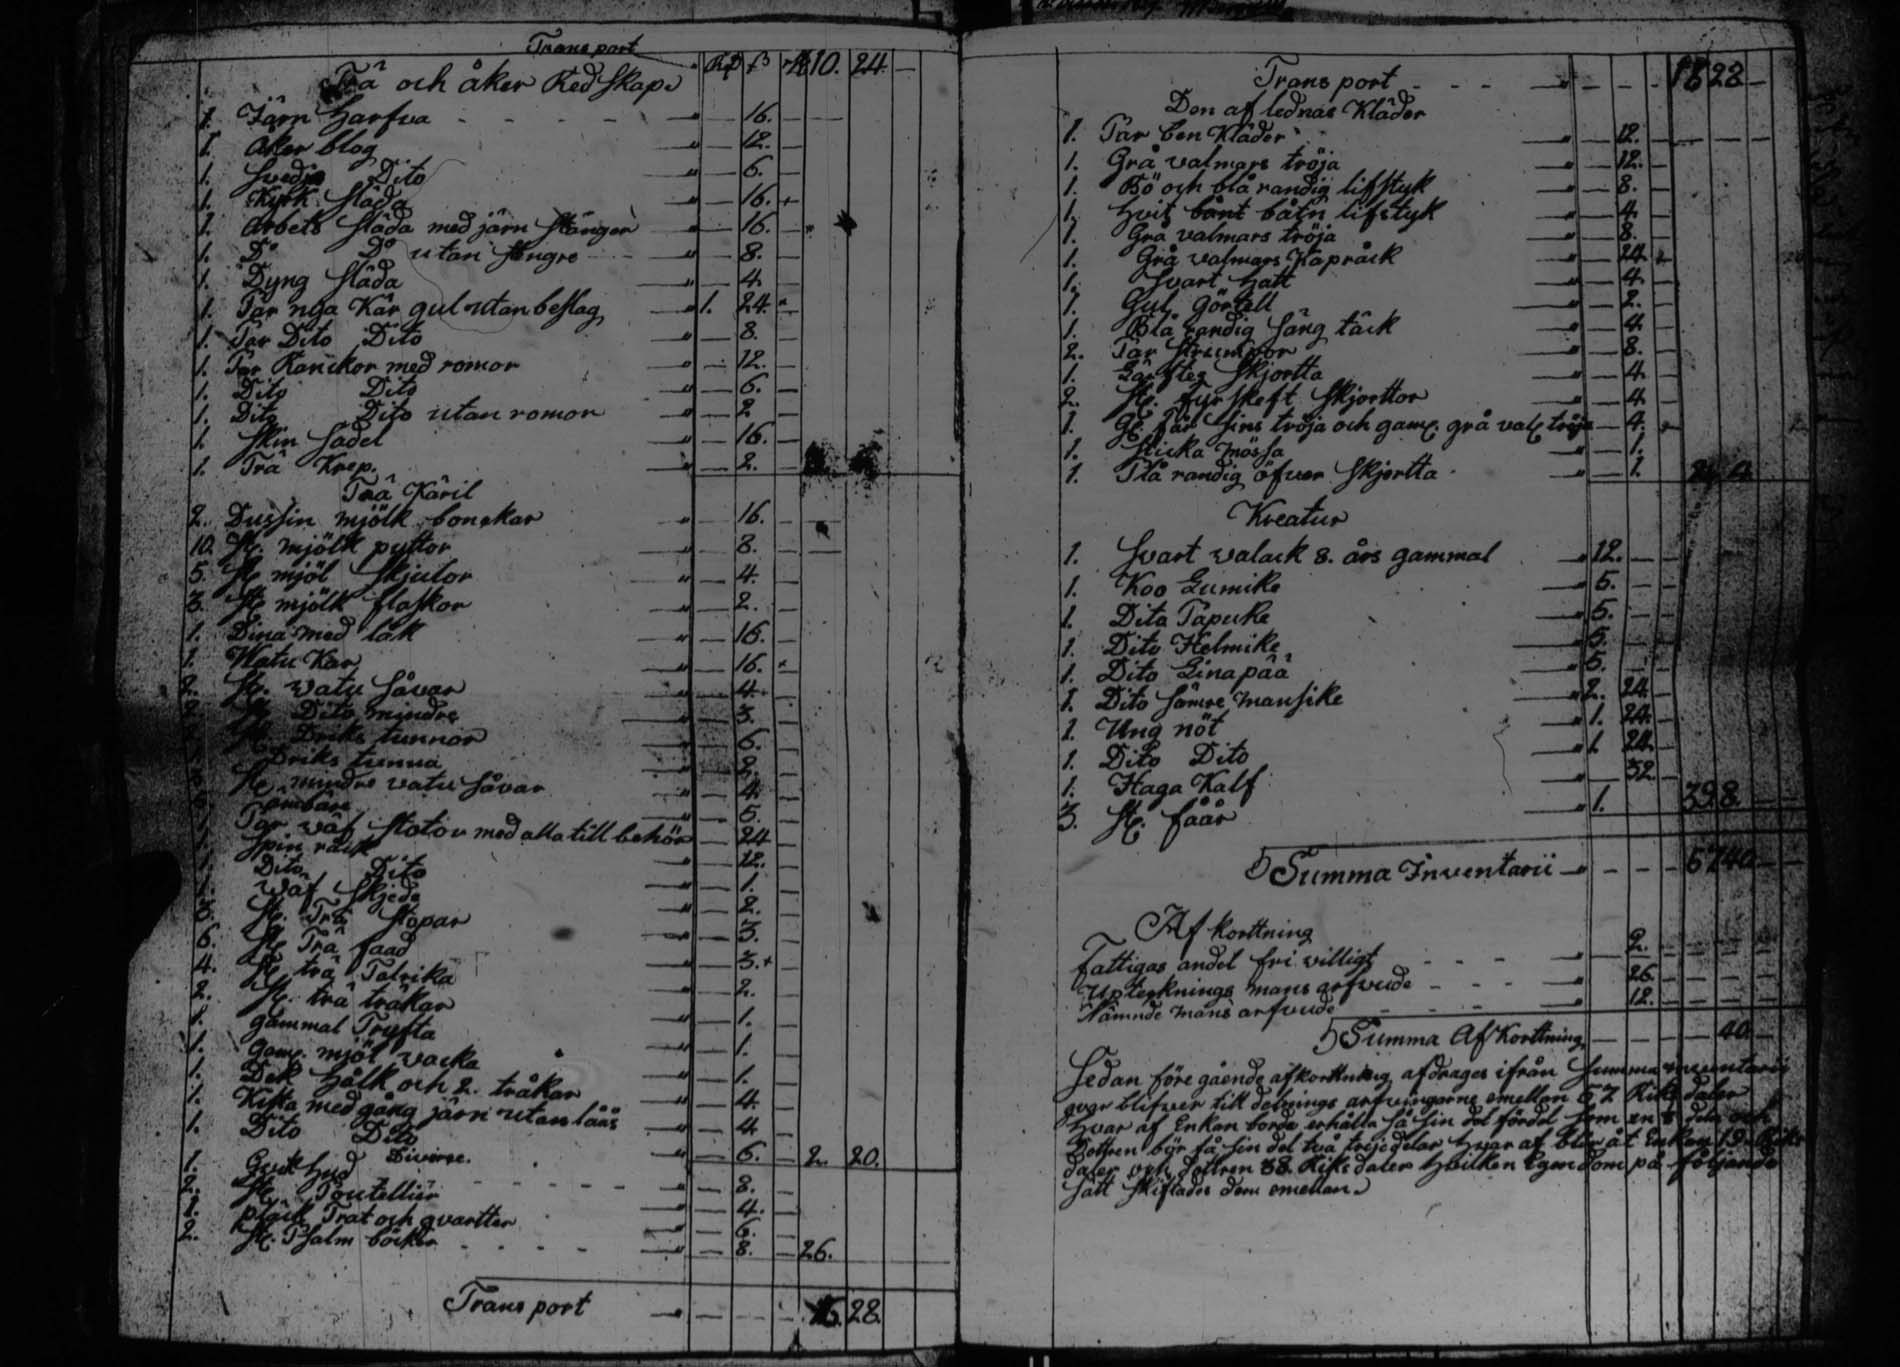 Transport
Trä och åker Redskap Rd ß 10. 24.
1. Järn Harfva 16.
1. Åker blog 12.
1. Svedje Dito 6.
1. Kyrk Släda 16.
1. Arbets släda med järn stänger 16.
1. D° D° utan stengre 8.
1. Dyng släda 4.
1. Par nya Kär gul utan beslag 1. 24.
1. Par Dito Dito 8.
1. Par Ranckor med romor 12.
1. Dito Dito 6.
1. Dito Dito utan romor 2
1. Skin Sadel 16.
1. Trä Krep. 2.
Trä Käril
2. Dussin mjölk bonckar 16.
10. St. mjölk pyttor 8.
5. St mjöl Skjulor 4.
3. St mjölk flaskor 2.
1. Dina med låk 16.
1. Watu Kar 16.
2. St. vatu Såvar 4.
2 St Dito mindre 3.
St. Driks tunnor 6.
Driks tunna 2.
St mindre vatu Såvar 4.
ämbare 5.
Par väf Stolar med alla till behör 24
Spin råck 12.
Dito Dito 1.
Väf Skjede 2.
3. St. Trä Stopar 3.
6. St Trä faad 3.
4. St trä Talrika 2.
2. St. trä träkar 1.
1. gammal Tryfta 1.
1. gam. mjöl vacka 1.
1. Dek Hålk och 2. tråkar 4.
1. Kista med gång järn utan låås 4
1. Dito Dito 6. 2. 20.
Diverse.
1. Hud 8.
2. St. Boutellier 4.
1. pläck Trat och qvartter 6.
2. St. Psalm böcker 8. 26.
Transport 15. 28.
Transport 15 28
Den aflednas Kläder
1. Par ben Kläder 12.
1. Grå valmars tröja 12.
1. Bö och blå randig lifstyk 8.
1. Hvit båtn lifstyk 4.
1. Grå valmars tröja 8.
1. Grå valmars Kapråck 24.
1. Svart Hatt 4.
1. Gul görtell 2.
1. Blå randig Säng täck 4.
2. Par Strumpor 8.
1. Lärfteg Skjortta 4.
2. St. fyrskeft Skjorttor 4.
1. St. får Sins tröja och gam. grå val. tröja 4.
1. Sticka Mössa 1.
1. Blå randig öfver Skjortta 1. 2. 4
Kreatur
1. Svart valack 8. års gammal 12.
1. Koo Lumike 5.
1. Dito Papuke 5.
1. Dito Helmike 5.
1. Dito Linapää 5.
1. Dito Sämre Mansike 2. 24.
1. Ung nöt 1. 24.
1. Dito Dito 1 24.
1. Haga Kalf 32.
3. St. fåår 1. 39 8.
Summa Inventarii 57 40
Af Korttning
Fattigas andel fri villigt 2.
Uptecknings mans arfvude 26.
Nämnde mans arfvude 12.
Summa Af Korttning 40
Sedan före gående afkorttning afdrages ifrån Summa inventarii
qvar blifver till delnings arfvingarne emellan 57 Riks daler
Hvar af Enkan borde erhålla Så sin del fördel som en 3 dela och
Dottren bör få sin del två trejedelar Hvar af blir åt Enkan 19. Riks
daler och Dottren 38. Riksdaler Hvilken Egendom på följande
Sätt Skiftades dem emellan.